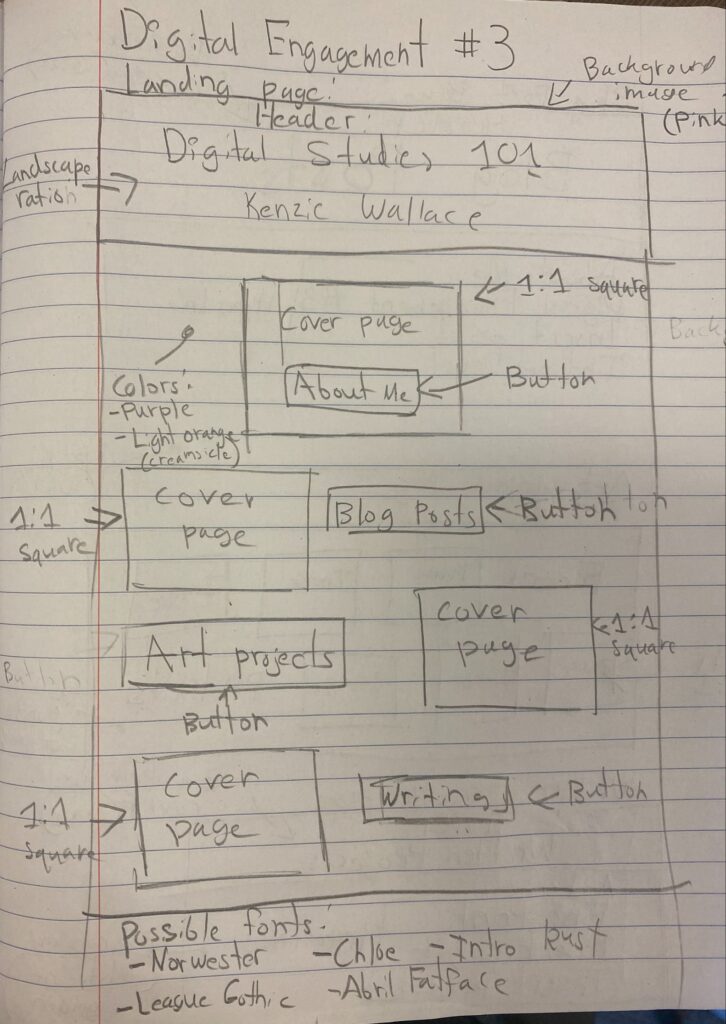 Digital Engagement #3
Landing page:
Background
image
(Pink
Header:
Digital Studies 101
Kenzie Wallace
Landscape
ration
1:1 Square
Cover page
About Me
Button
Colors:
-Purple
-Light orange
(creamsicle)
1:1
Square
Cover
page
Blog Posts
Button
Cover
page
1:1
Square
Art projects
Button
Button
Cover
page
1:1
Square
Writings
Button
Possible fonts:
-Norwester -Chloe -Intro Rust
-League Gothic -Abril Fatface